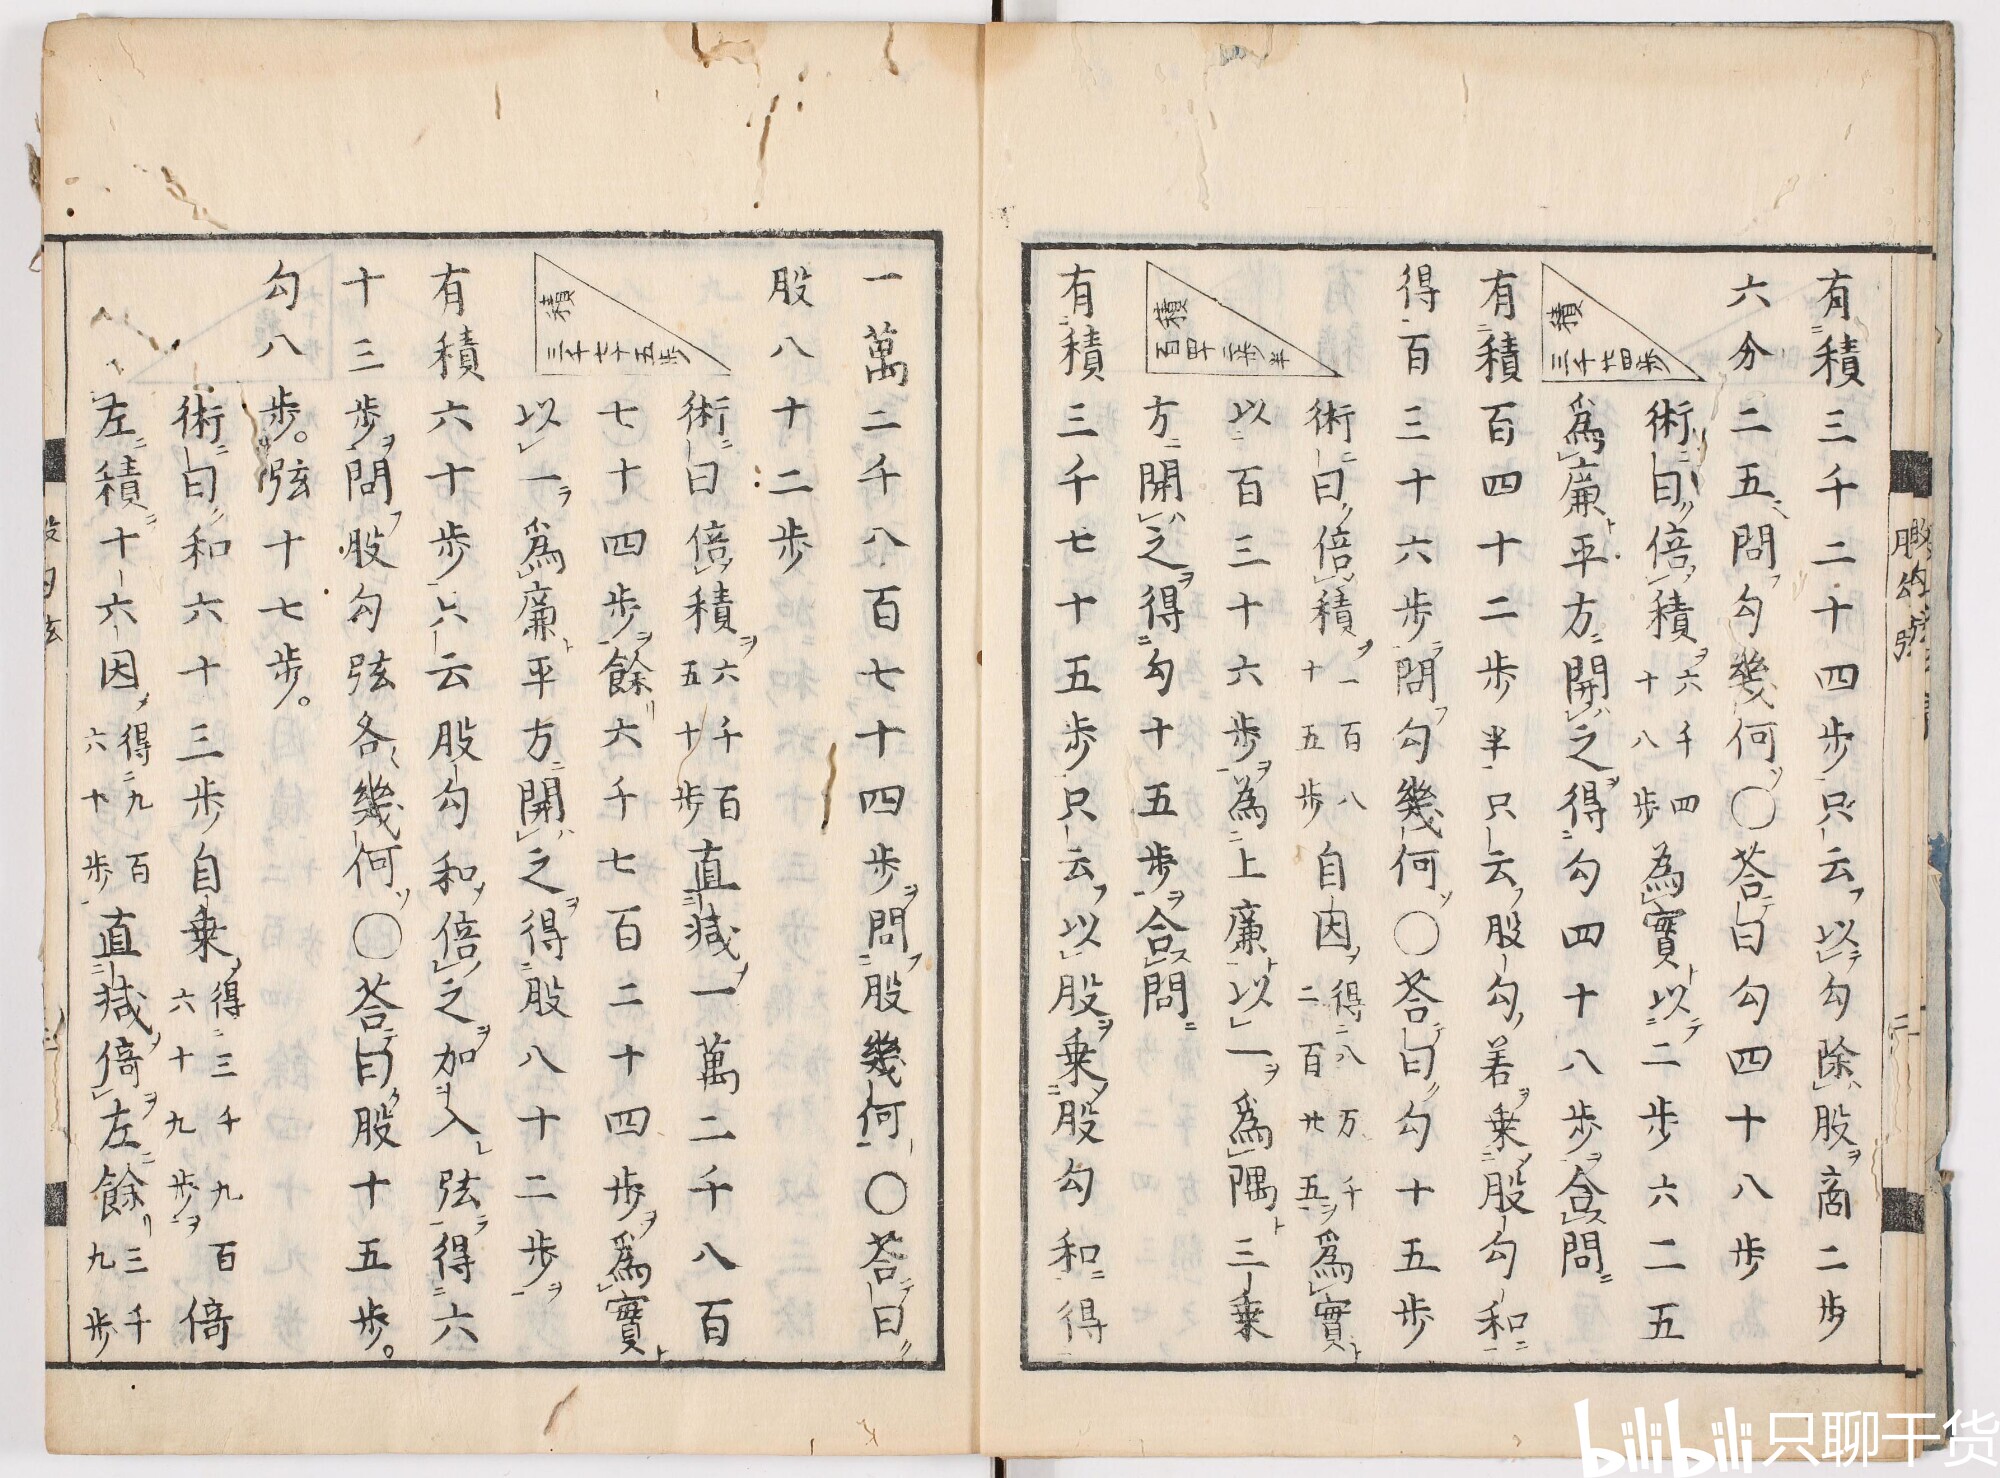 有積三千二十四歩只云以勾除股商二歩
六分二五問勾幾何〇荅曰勾四十八歩
積
三千廿四歩
術曰倍積六千四十八歩為實以二歩六二五
爲廉平方開之得勾四十八歩合問
有積百四十二歩半只云股勾差乗股勾和
得百三十六歩問勾幾何〇荅曰勾十五歩
積
百四十二歩半
術曰倍積一百八十五歩自因得八万千二百廿五爲實
以百三十六歩為上廉以一爲隅三乗
方開之得勾十五歩合問
有積三千七十五歩只云以股乗股勾和得
股勾弦
二
一萬二千八百七十四歩問股幾何〇荅曰
股八十二歩
積
三千七十五歩
術曰倍積六千百五十歩直減一萬二千八百
七十四歩餘六千七百二十四歩爲實
以一爲廉平方開之得股八十二歩
有積六十歩只云股勾和倍之加入弦得六
十三歩問股勾弦各幾何〇荅曰股十五歩。
勾八歩。弦十七歩。
術曰和六十三歩自乗得三千九百六十九歩倍
左積十六因得九百六十歩直減倍左餘三千九歩
股勾弦
bilibili 只聊干货